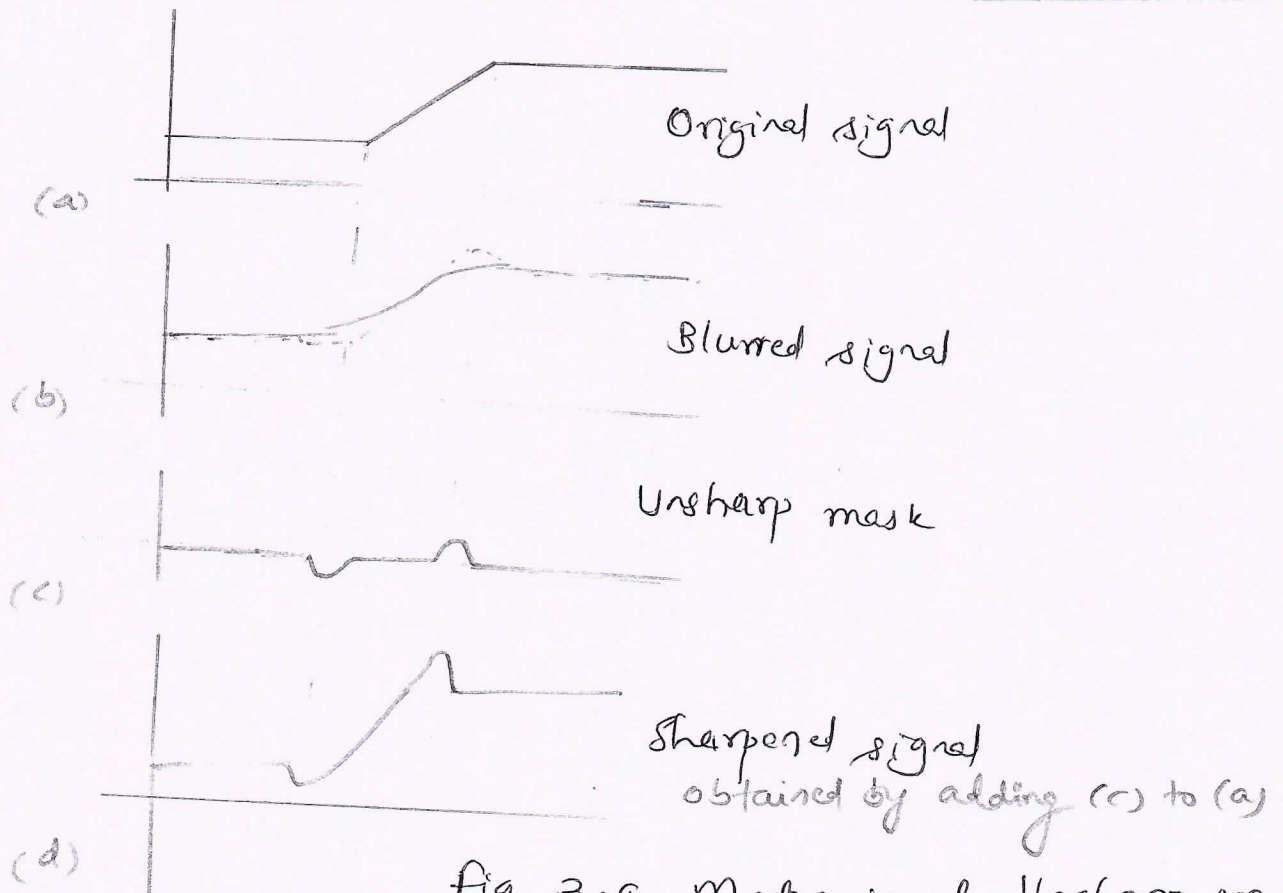 Original signal
(a)
Blurred signal
(b)
Unsharp mask
(c)
Sharpened signal
obtained by adding (c) to (a)
(d)